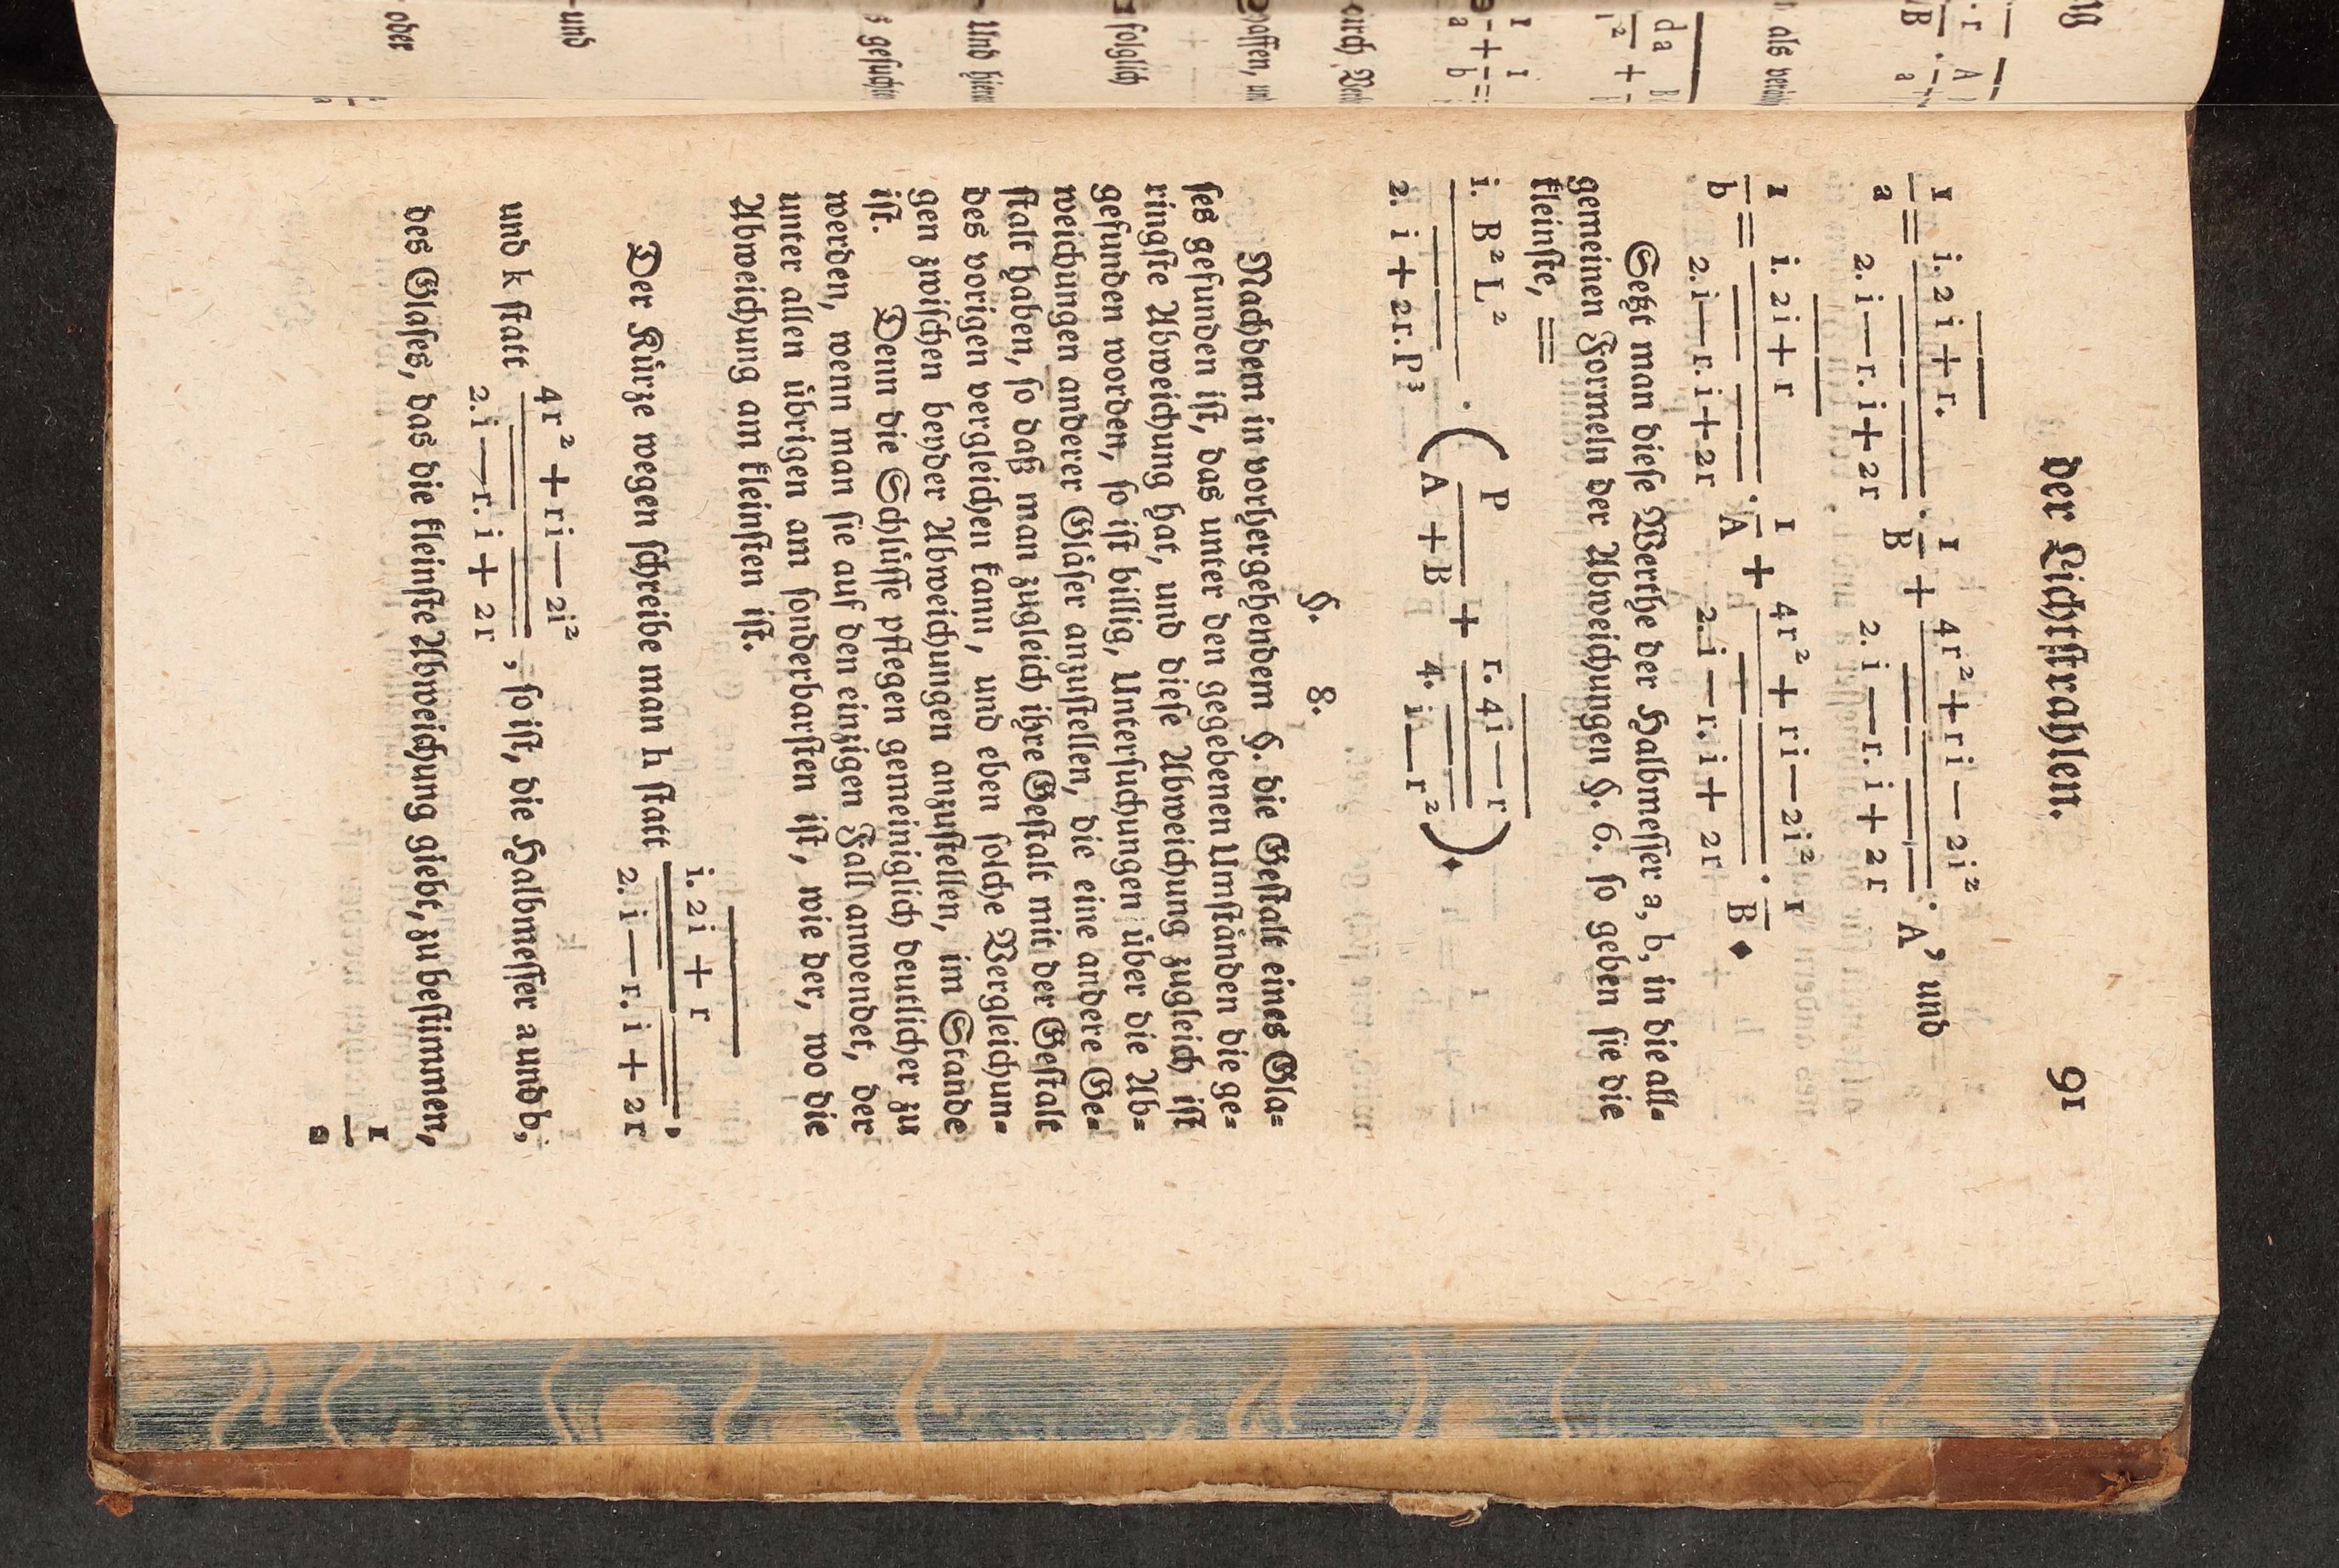 der Lichtstrahlen. 91
1/a = i. 2i + r. / 2. i — r. i + 2r . 1/B + 4r² + ri — 2i² / 2. i — r. i + 2r . 1/A, und
1/b = i. 2i + r / 2. i — r. i + 2r . 1/A + 4r² + ri — 2i² / 2. i — r. i + 2r . 1/B.
Setzt man diese Werthe der Halbmesser a, b, in die all-
gemeinen Formeln der Abweichungen §. 6. so geben sie die
kleinste, =
i. B² L² / 2. i + 2r. P³ . ( P / A + B + r. 4i — r / 4. i — r² ).
§. 8.
Nachdem in vorhergehendem §. die Gestalt eines Gla-
ses gefunden ist, das unter den gegebenen Umständen die ge-
ringste Abweichung hat, und diese Abweichung zugleich ist
gefunden worden, so ist billig, Untersuchungen über die Ab-
weichungen anderer Gläser anzustellen, die eine andere Ge-
stalt haben, so daß man zugleich ihre Gestalt mit der Gestalt
des vorigen vergleichen kann, und eben solche Vergleichun-
gen zwischen beyder Abweichungen anzustellen, im Stande
ist. Denn die Schlüsse pflegen gemeiniglich deutlicher zu
werden, wenn man sie auf den einzigen Fall anwendet, der
unter allen übrigen am sonderbarsten ist, wie der, wo die
Abweichung am kleinsten ist.
Der Kürze wegen schreibe man h statt i. 2i + r / 2. i — r. i + 2r,
und k statt 4r² + ri — 2i² / 2. i — r. i + 2r, so ist, die Halbmesser a und b,
des Glases, das die kleinste Abweichung giebt, zu bestimmen,
1/a